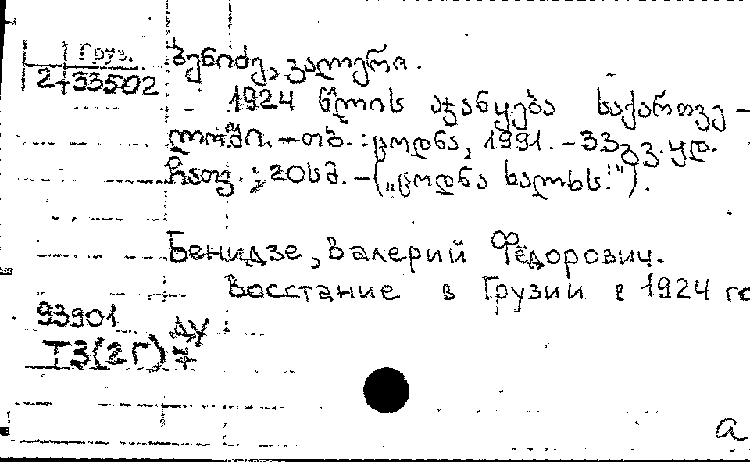 Груз.
2-33502
ბენიძე, ვალერი.
1924 წლის აჯანყება საქართვე-
ლოში. - თბ. : ცოდნა, 1991. - 33 გვ. ყდ.
ჩათვ. ; 20 სმ. - („ცოდნა ხალხს!").
Бенидзе, Валерий Фёдорович.
Восстание в Грузии в 1924 го
93901
Т3(2Г)7
ДУ
а